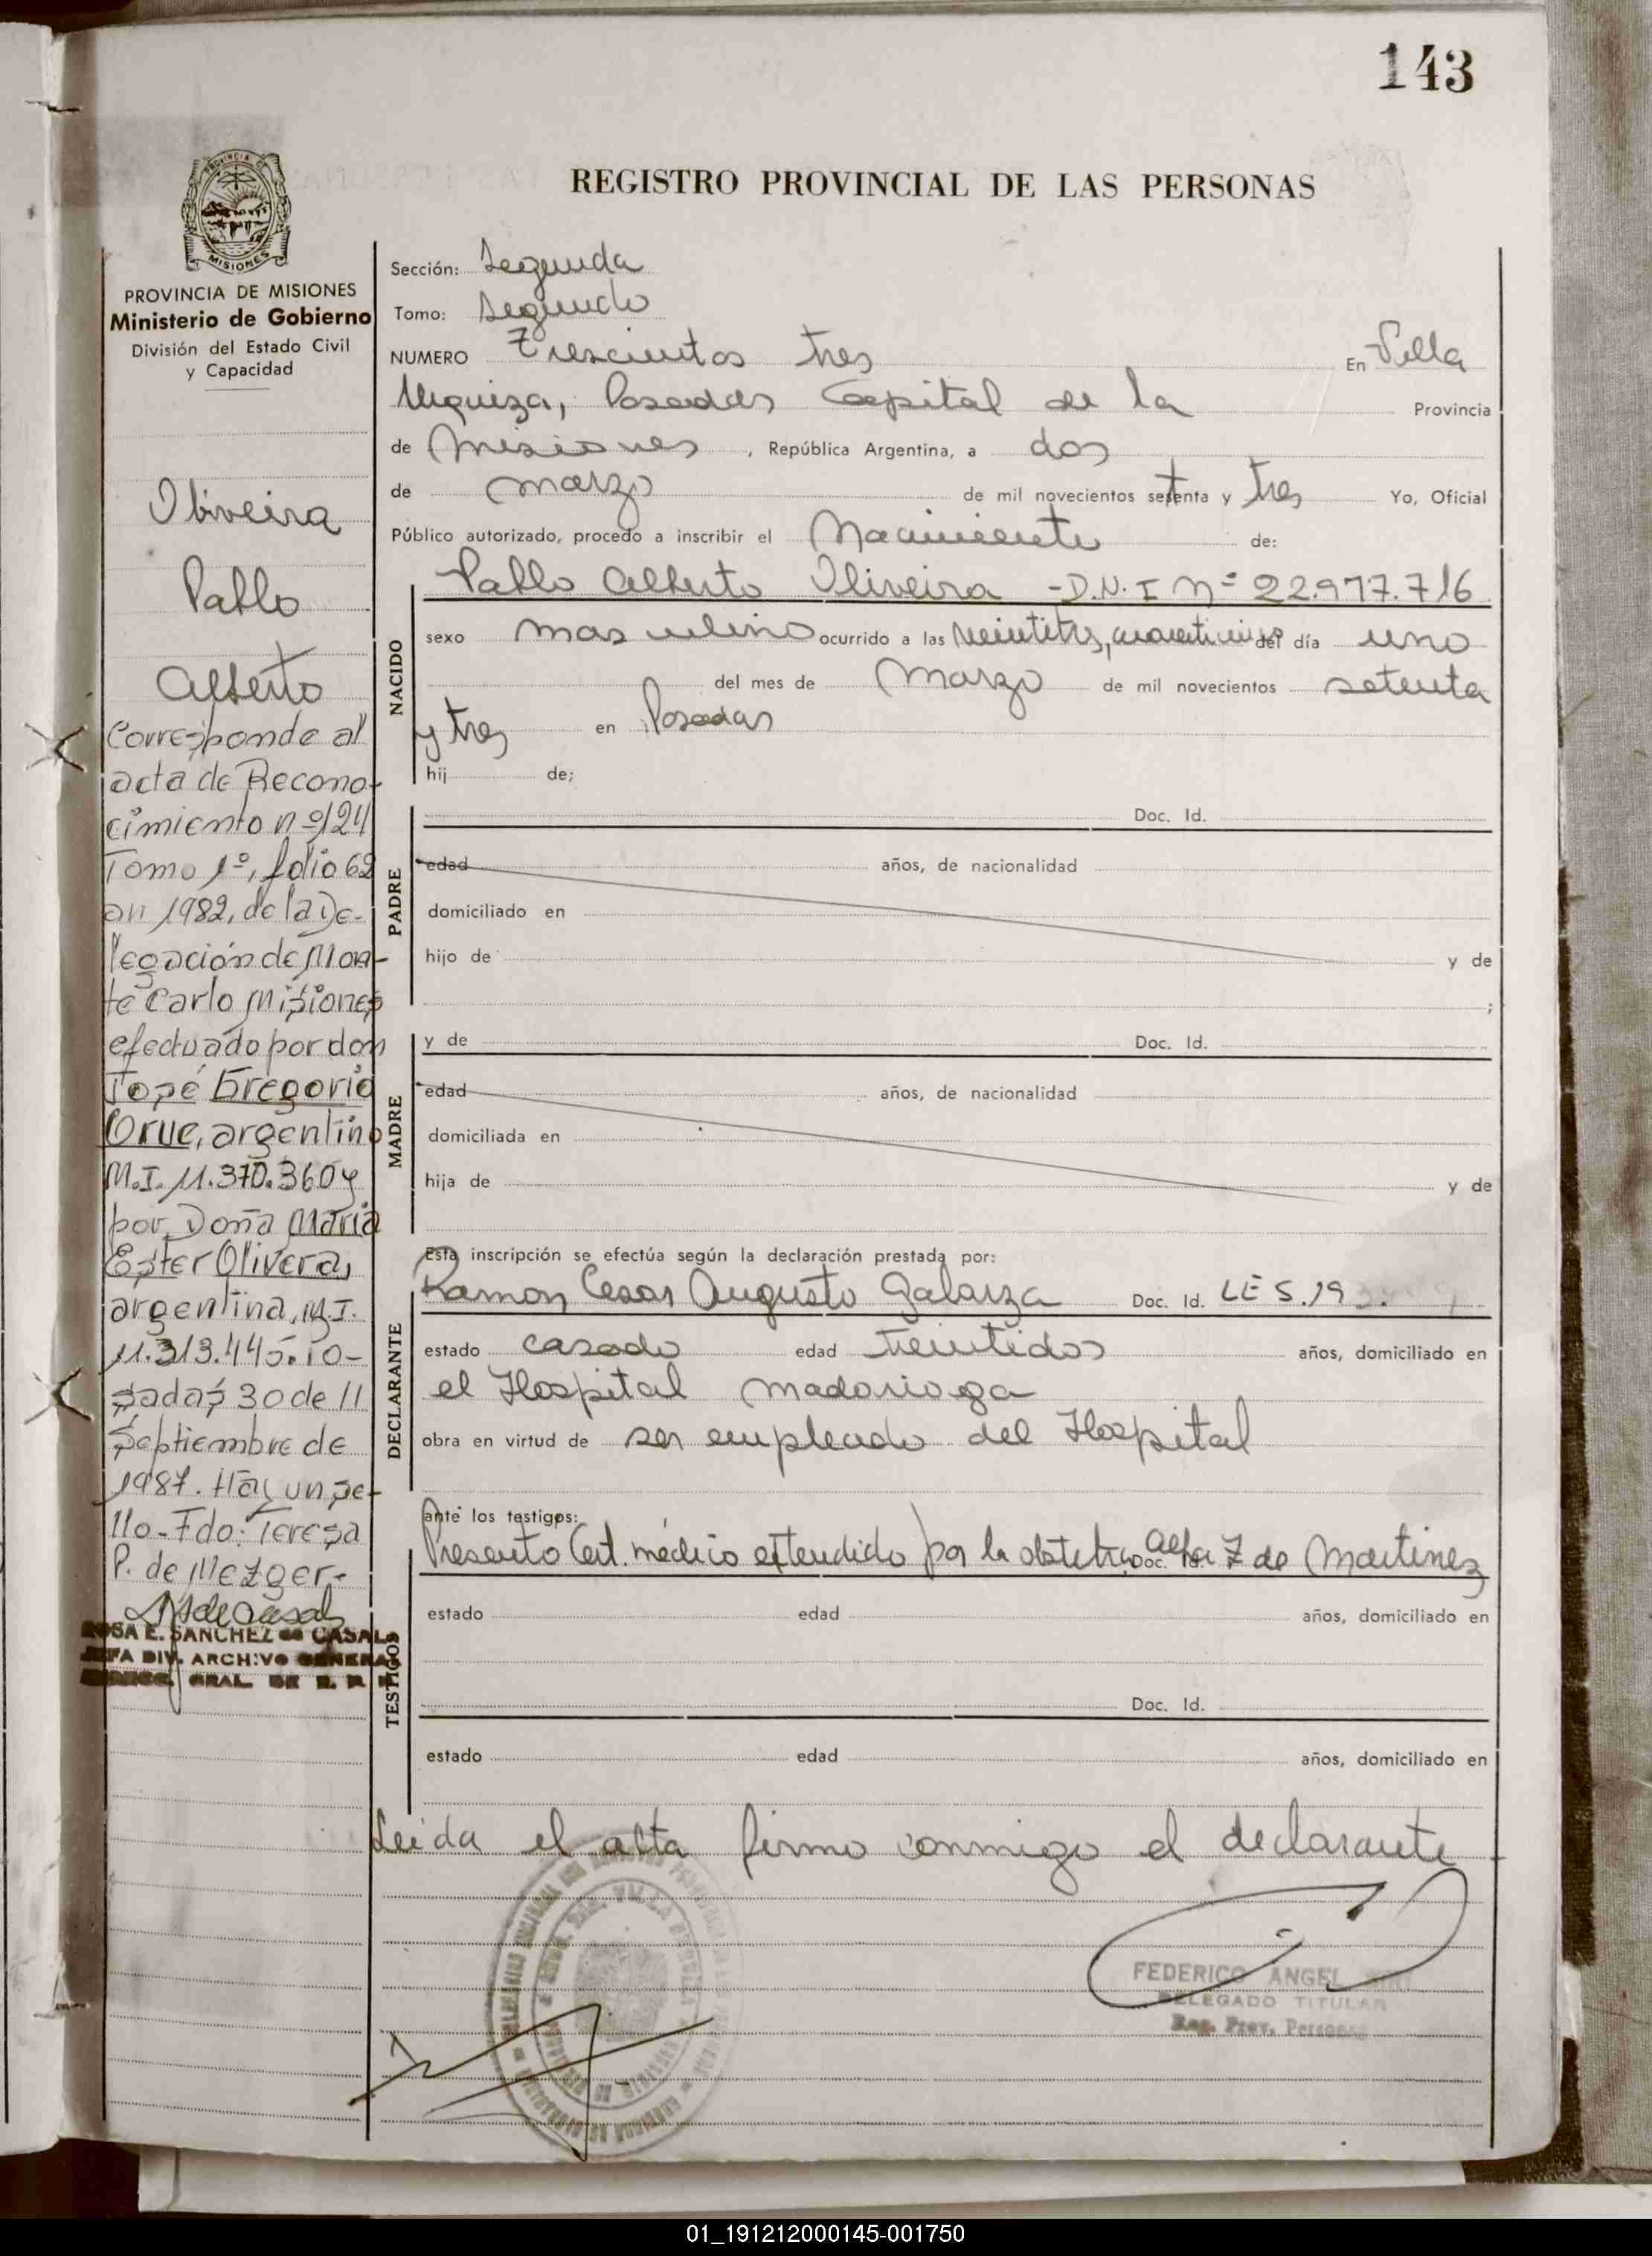 143
REGISTRO PROVINCIAL DE LAS PERSONAS
PROVINCIA DE MISIONES
Ministerio de Gobierno
División del Estado Civil
y Capacidad
Oliveira
Pablo
Alberto
Corresponde al
acta de Recono-
cimiento nº 124
Tomo 1º, folio 62
an 1982, de la De-
legación de Mon-
te Carlo Misiones
efectuado por don
José Gregorio
Orue, argentino
M.I. 11.370.360 y
por Doña Maria
Ester Olivera,
argentina, M.I.
11.313.445. Po-
sadas 30 de
Septiembre de
1987. Hay un se-
llo - Fdo: Teresa
P. de Mezger.-
ROSA E. SANCHEZ de CASALS
JEFA DIV. ARCHIVO GENERAL
GRAL. DE R. P.
Sección: Segunda
Tomo: Segundo
NUMERO Trescientos tres En Villa
Urquiza, Posadas Capital de la Provincia
de Misiones, República Argentina, a dos
de marzo de mil novecientos setenta y tres Yo, Oficial
Público autorizado, procedo a inscribir el Nacimiento de:
NACIDO
Pablo Alberto Oliveira - D.N.I nº 22.977.716
sexo masculino ocurrido a las veintitrés, cuarenticinco del día uno
del mes de Marzo de mil novecientos setenta
y tres en Posadas
hij de;
PADRE
Doc. Id.
edad años, de nacionalidad
domiciliado en
hijo de y de
;
MADRE
y de Doc. Id.
edad años, de nacionalidad
domiciliada en
hija de y de
Esta inscripción se efectúa según la declaración prestada por:
DECLARANTE
Ramon Cesar Augusto Galarza Doc. Id. LE 5.19
estado casado edad treintidos años, domiciliado en
el Hospital Madariaga
obra en virtud de ser empleado del Hospital
ante los testigos:
TESTIGOS
Presento Cert. médico extendido por la obstetra Doc. Id. Z de Martinez
estado edad años, domiciliado en
Doc. Id.
estado edad años, domiciliado en
Leida el acta firma conmigo el declarante
FEDERICO ANGEL
DELEGADO TITULAR
Reg. Prov. Personas
01_191212000145-001750